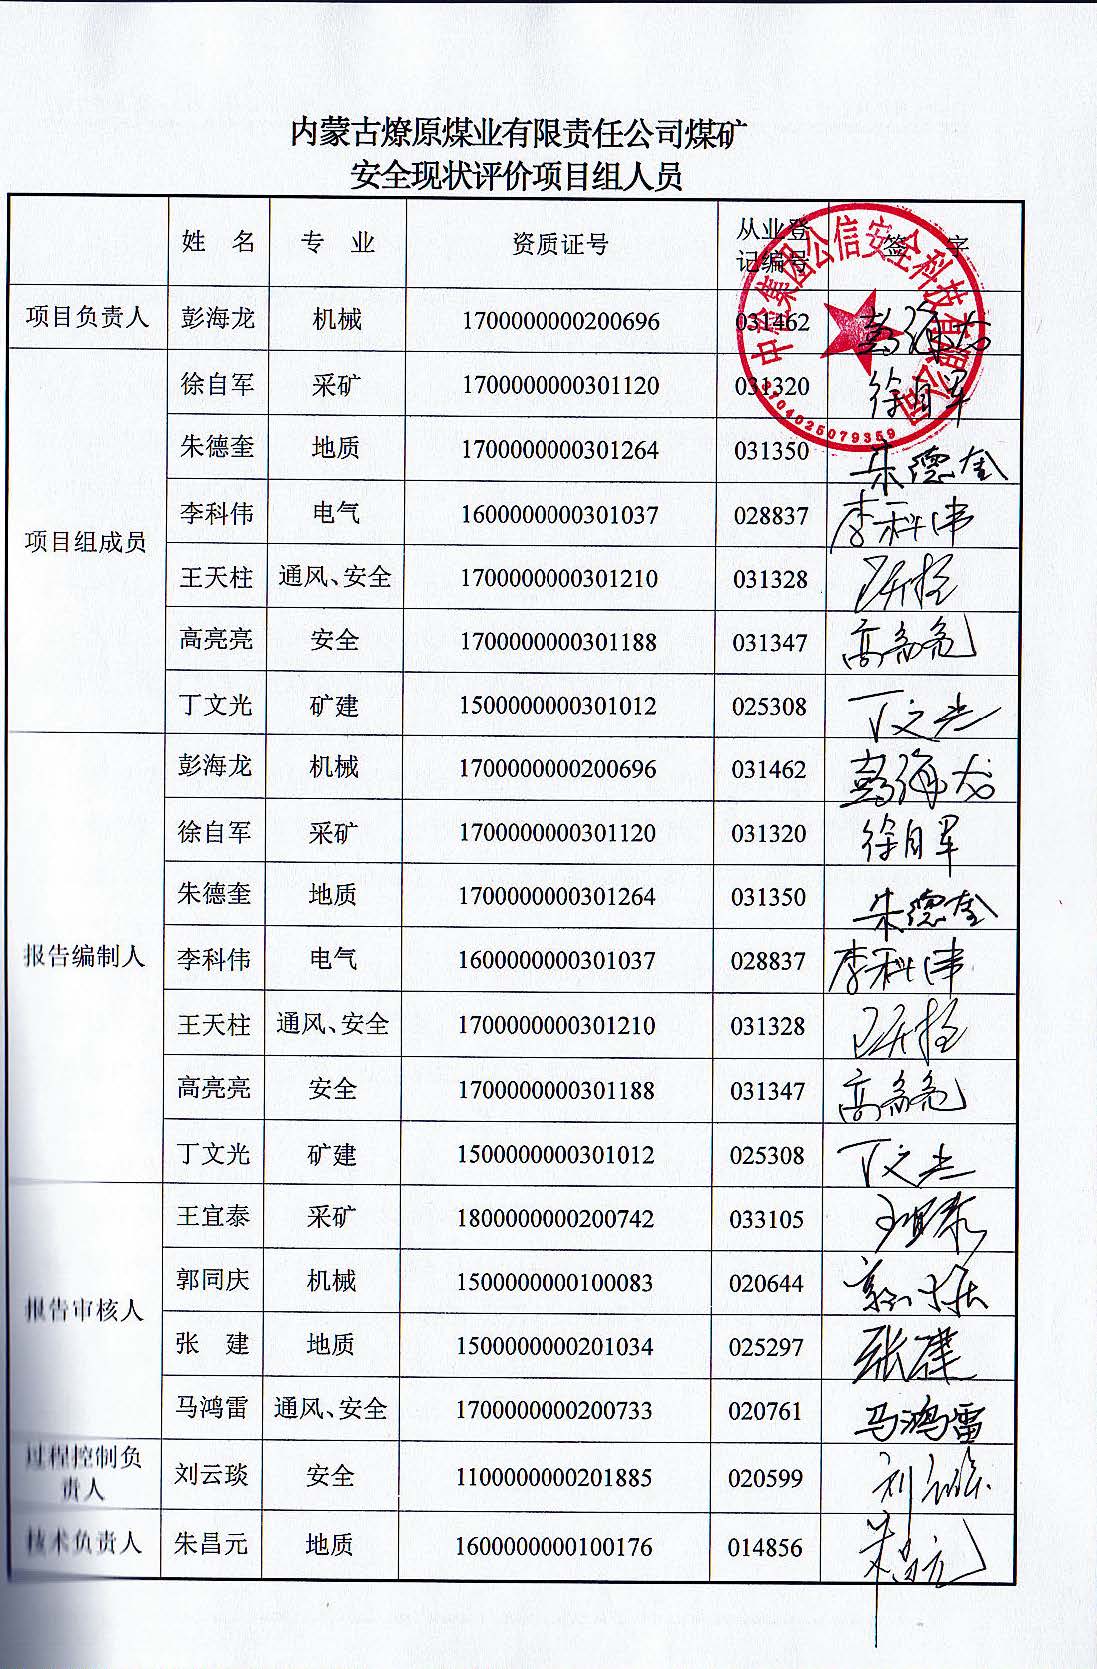 内蒙古燎原煤业有限责任公司煤矿
安全现状评价项目组人员
姓 名 专 业 资质证号 从业登记编号 签 字
项目负责人 彭海龙 机械 1700000000200696 031462 彭海龙
项目组成员
徐自军 采矿 1700000000301120 031320 徐自军
朱德奎 地质 1700000000301264 031350 朱德奎
李科伟 电气 1600000000301037 028837 李科伟
王天柱 通风、安全 1700000000301210 031328 王天柱
高亮亮 安全 1700000000301188 031347 高亮亮
丁文光 矿建 1500000000301012 025308 丁文光
报告编制人
彭海龙 机械 1700000000200696 031462 彭海龙
徐自军 采矿 1700000000301120 031320 徐自军
朱德奎 地质 1700000000301264 031350 朱德奎
李科伟 电气 1600000000301037 028837 李科伟
王天柱 通风、安全 1700000000301210 031328 王天柱
高亮亮 安全 1700000000301188 031347 高亮亮
丁文光 矿建 1500000000301012 025308 丁文光
报告审核人
王宜泰 采矿 1800000000200742 033105 王宜泰
郭同庆 机械 1500000000100083 020644 郭同庆
张 建 地质 1500000000201034 025297 张建
马鸿雷 通风、安全 1700000000200733 020761 马鸿雷
过程控制负责人 刘云琰 安全 1100000000201885 020599 刘云琰
技术负责人 朱昌元 地质 1600000000100176 014856 朱昌元
中检集团公信安全科技有限公司
3704025079359